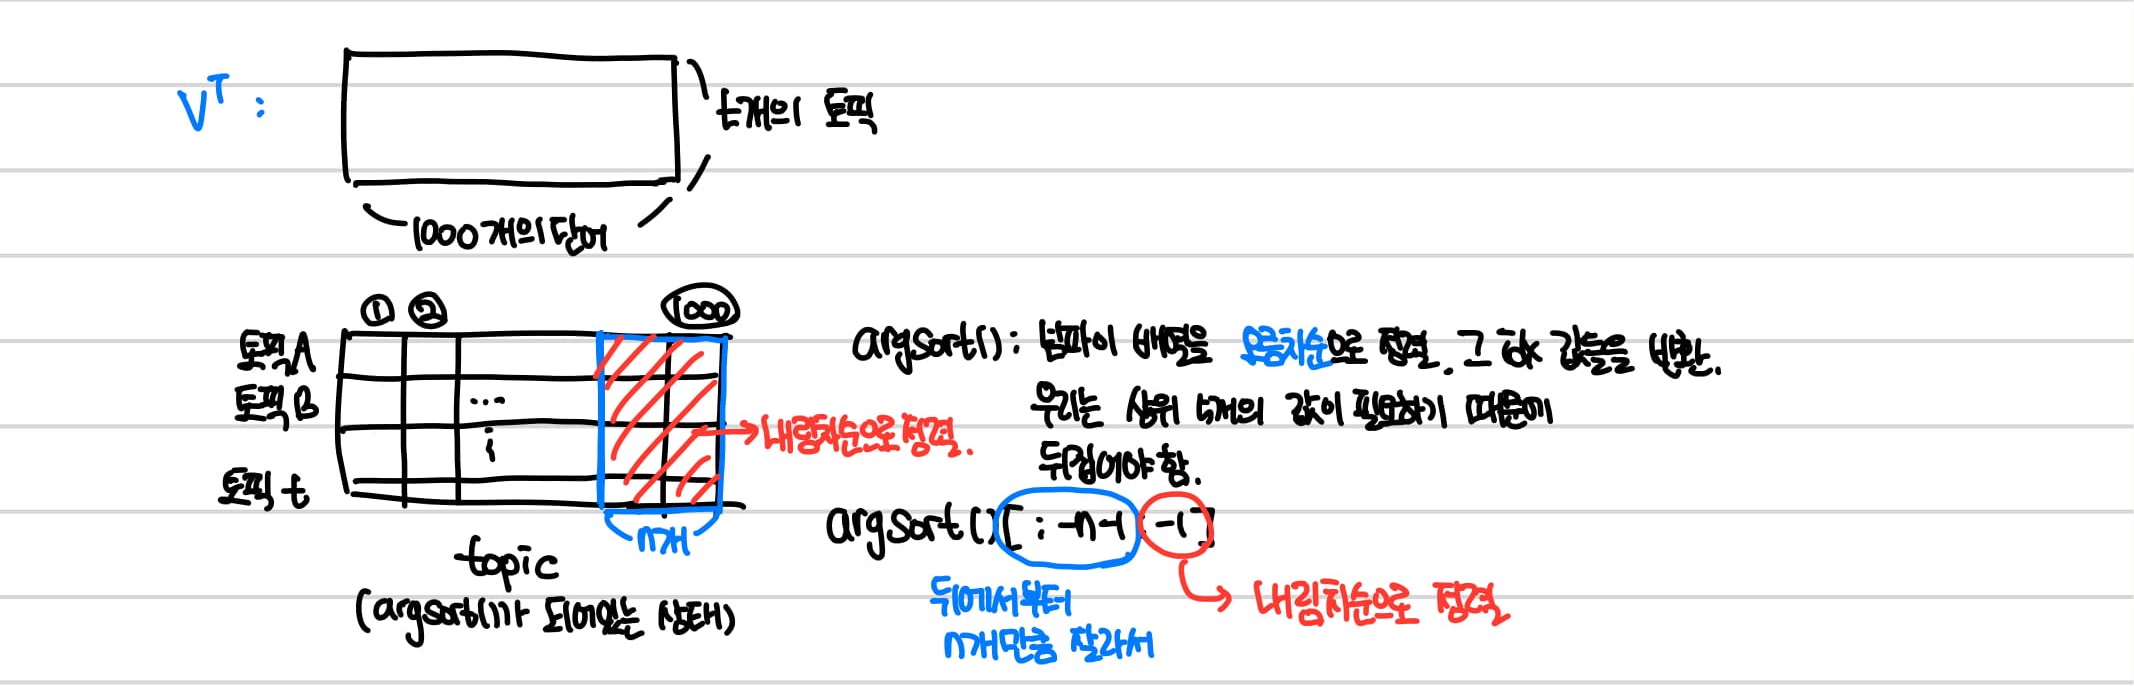 V^T :
t개의 토픽
1000개의 단어
① ② 1000
토픽A
토픽B
...
토픽 t
n개
→ 내림차순으로 정렬.
topic
(argsort()가 되어있는 상태)
argsort() : 넘파이 배열을 오름차순으로 정렬. 그 idx 값들을 반환.
우리는 상위 n개의 값이 필요하기 때문에
뒤집어야 함.
argsort()[ : -n-1 : -1]
뒤에서부터
n개만큼 잘라서
→ 내림차순으로 정렬